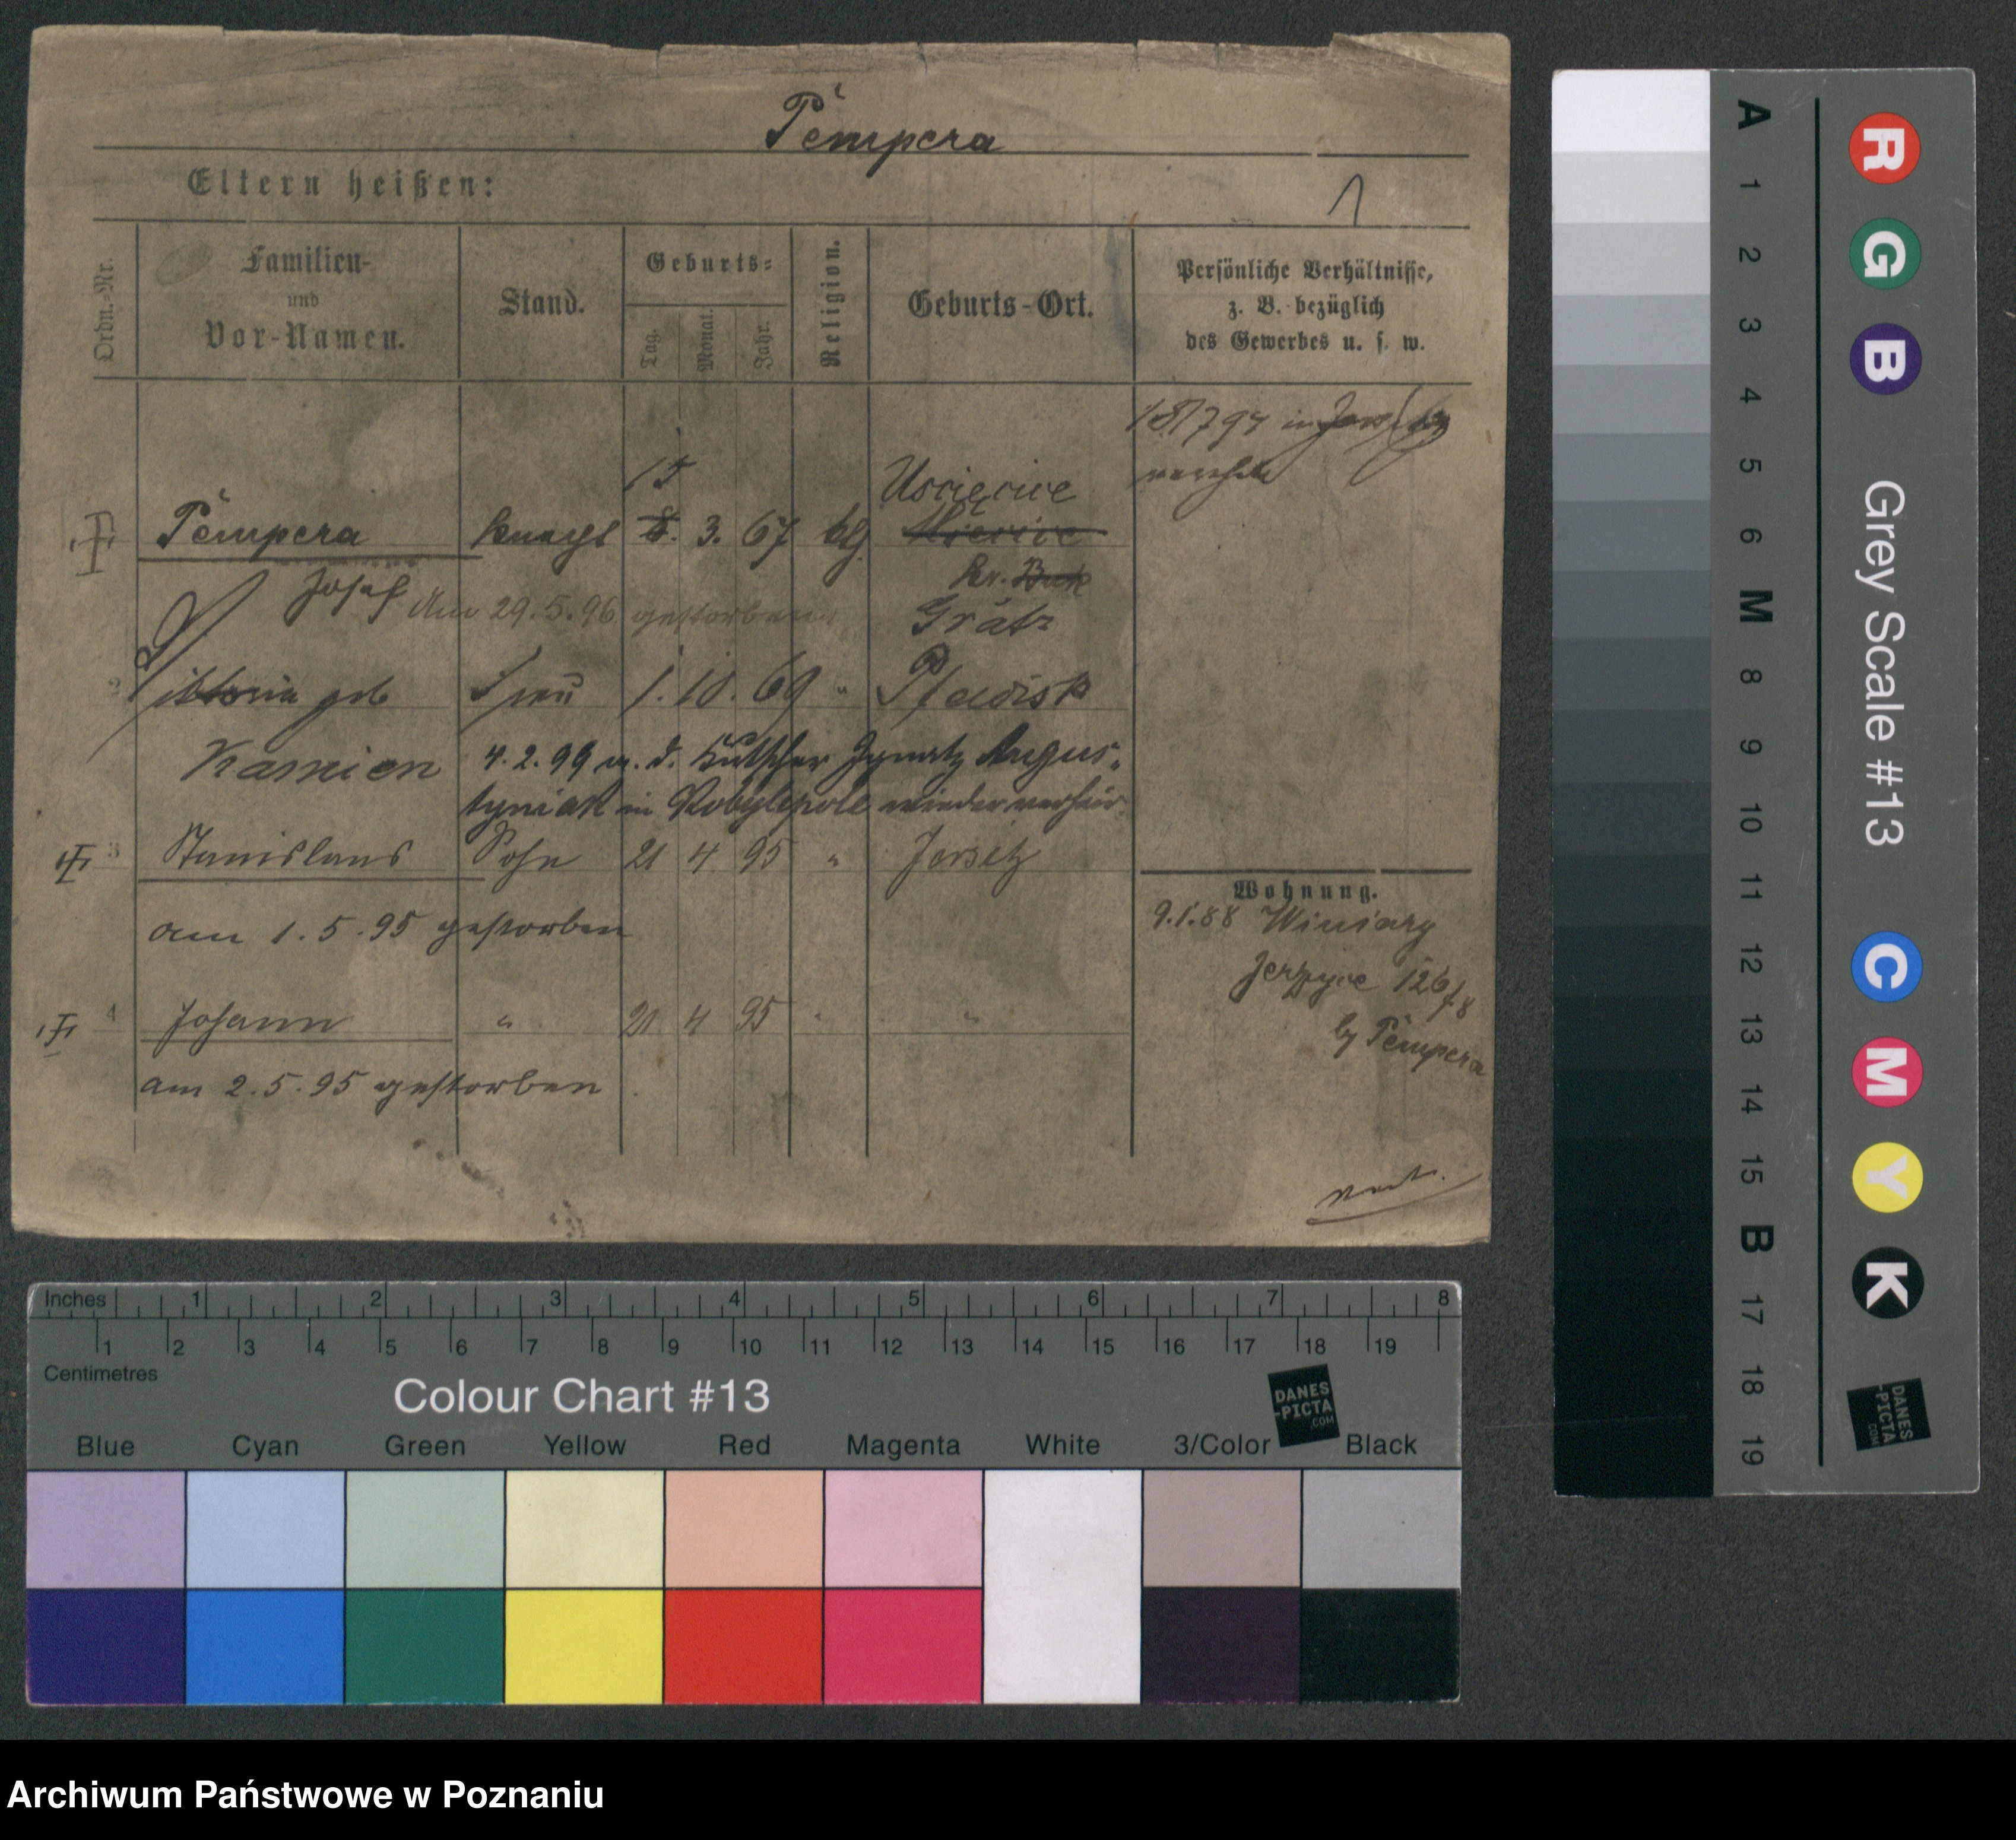 Pempera
Eltern heißen:
1
Ordn.-Nr.
Familien-
und
Vor-Namen.
Stand.
Geburts-
Tag.
Monat.
Jahr.
Religion.
Geburts-Ort.
Persönliche Verhältnisse,
z. B. bezüglich
des Gewerbes u. s. w.
18/7 94 in Jersitz
15 Uscięcice
Pempera 3. 67
Kr. Buk
Josef Am 29.5.96 gestorben Grätz
2 Viktoria geb Frau 1. 10. 69 "
Kamien 4.2.99 m. d. Kutscher Ignatz Augus-
tyniak in Kobylepole wieder verheir.
3 Stanislaus Sohn 21 4 95 " Jersitz
am 1.5.95 gestorben
4 Johann " 21 4 95 " "
am 2.5.95 gestorben
Wohnung.
9.1.88 Winiary
Jerzyce 126/8
by Pempera
Inches 1 2 3 4 5 6 7 8
1 2 3 4 5 6 7 8 9 10 11 12 13 14 15 16 17 18 19
Centimetres
Colour Chart #13
DANES
-PICTA
.COM
Blue Cyan Green Yellow Red Magenta White 3/Color Black
A 1 2 3 4 5 6 M 8 9 10 11 12 13 14 15 B 17 18 19
R G B
Grey Scale #13
C M Y K
DANES
-PICTA
.COM
Archiwum Państwowe w Poznaniu